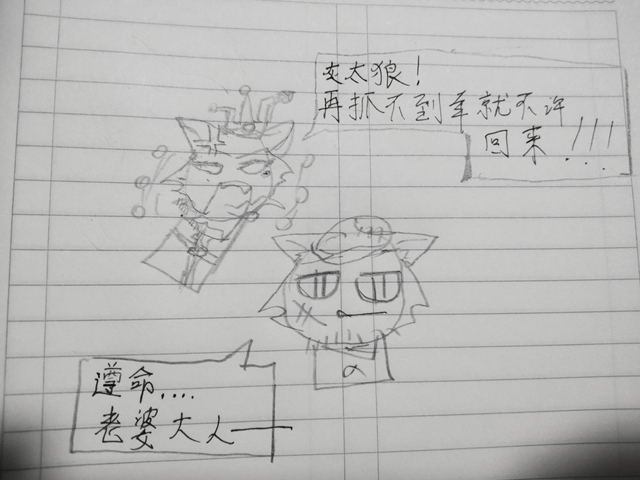 灰太狼！
再抓不到羊就不许
回来！！！
遵命....
老婆大人——